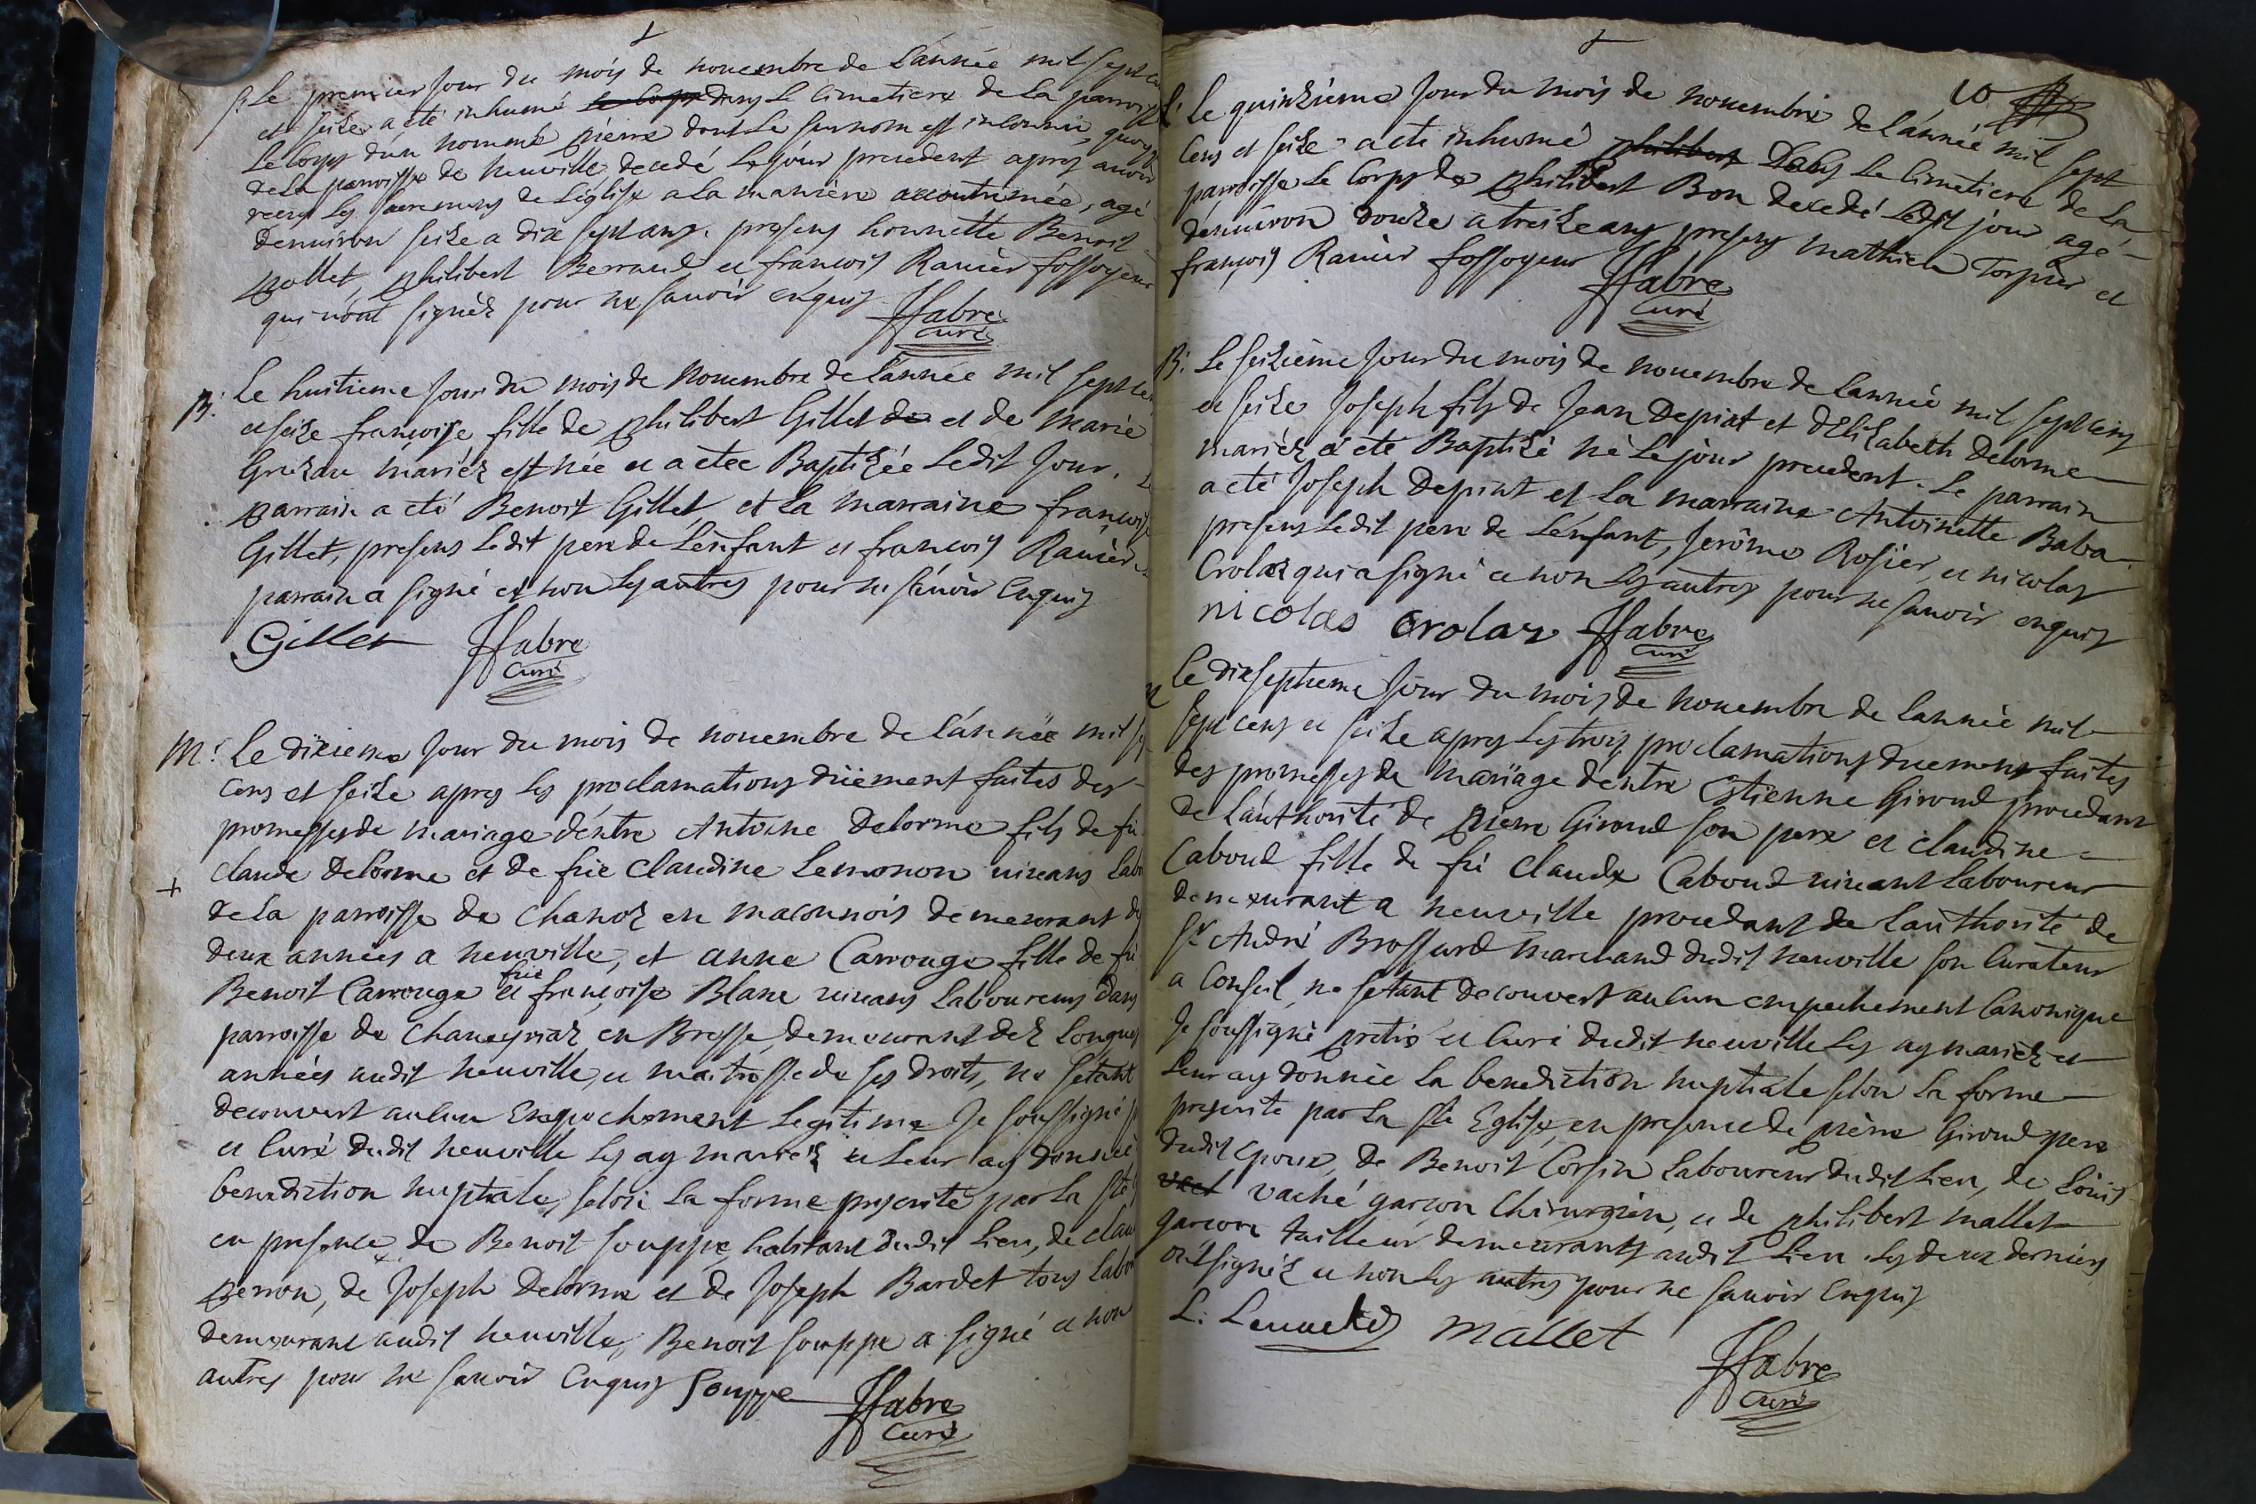 S. Le premier Jour du mois de nouembre de Lánnée mil sept ce
et seize a été inhumé le corps dans Le Cimetiere de La parroisse
Le Corps dún nommé pierre dont Le surnom est inconnu, quoyq
de La parroisse de neuville, decedé Le jóur precedent apres auoir
receu Les sacremens de Léglise a la maniere accoutumée, agé
denuiron seize a dix sept ans. presens honnette Benoit
pollet, philibert Berraud et francois Rauier fossoyeur
qui nónt signéz pour ne sauoir enquis
JFabre
Curé
B. Le huitieme Jour du mois de Nouembre de Lannée mil sept ce
et seize françoise fille de philibert Gillet de et de Marie
Gruzau mariéz est née et a etee Baptizée Ledit Jour. Le
parrain a eté Benoit Gillet et La marraine françoise
Gillet, presens Ledit pere de Lénfant et francois Rauier Le
parrain a signé et non Les autres pour ne scauoir enquis
Gillet JFabre
Curé
M. Le dixieme Jour du mois de nouembre de Lánnée mil se
Cens et seize apres Les proclamations düement faites des
promesses de mariage dentre Antoine Delorme fils de fü
+ claude Delorme et de füe Claudine Lemonon viuans Labo
de La parroisse de Chanoz en maconnois demeurant de
deux années a neuville, et anne Carrouge fille de fü
Benoit Carrouge et füe françoise Blanc viuans Laboureurs dans
parroisse de Chaueyriaz en Bresse, demeurant dez Longues
années audit neuville, et maitresse de ses droits, ne sétant
decouvert aucun Empechement Legitime Je soussigné p
et Curé dudit neuville Les ay mariéz et Leur ay donnée
benediction nuptiale, selon La forme prescrite par La ste
en presence de Benoit souppe, habitant dudit Lieu, de clau
perron, de Joseph Delorme et de Joseph Bardet tous Labo
demeurant audit neuville, Benoit souppe a signé et non
autres pour ne sauoir Enquis Souppe JFabre
Curé
10
S. Le quinzieme Jour du mois de nouembre de Lánnée mil sept
Cens et seize a eté inhumé philibert Dans Le Cimetiere de La
parroisse Le Corps de philibert Bon decedé Ledit jour agé
dénuiron douze a treize ans presens mathieu Torpier et
françois Rauier fossoyeur JFabre
Curé
B. Le seizieme Jour du mois de nouembre de Lannée mil sept Cens
et seize Joseph fils de Jean Depiat et dElizabeth Delorme
mariéz a été Baptizé né Le jour precedent. Le parrain
a eté Joseph Depiat et La marraine Antoinette Baba
presens Ledit pere de Lénfant, Jerôme Rosier, et nicolas
Crolaz qui a signé et non Les autres pour ne sauoir enquis
nicolas crolaz JFabre
Curé
M Le dixseptieme Jour du mois de nouembre de Lannée mil
sept cens et seize apres Les trois proclamations duement faites
des promesses de mariage dentre Estienne Giroud procedant
de Lauthorité de pierre Giroud son pere et claudine
Caboud fille de fü Claude Caboud viuant Laboureur
demeurant a neuville procedant de Lauthorité de
Sr. André Brossard marchand dudit neuville son Curateur
a Conseil, ne sétant decouvert aucun empechement Canonique
Je soussigné pretre et Curé dudit neuville Les ay mariéz et
Leur ay donnée La benediction nuptiale selon La forme
prescrite par La Ste Eglise, en presence de pierre Giroud pere
dudit Epoux, de Benoit Corsin Laboureur dudit Lieu, de Lóuis
vach vaché garçon Chirurgien, et de philibert mallet
garçon tailleur demeurants audit Lieu Les deux derniers
ont signéz et non Les autres pour ne sauoir Enquis
L: mallet JFabre
Curé